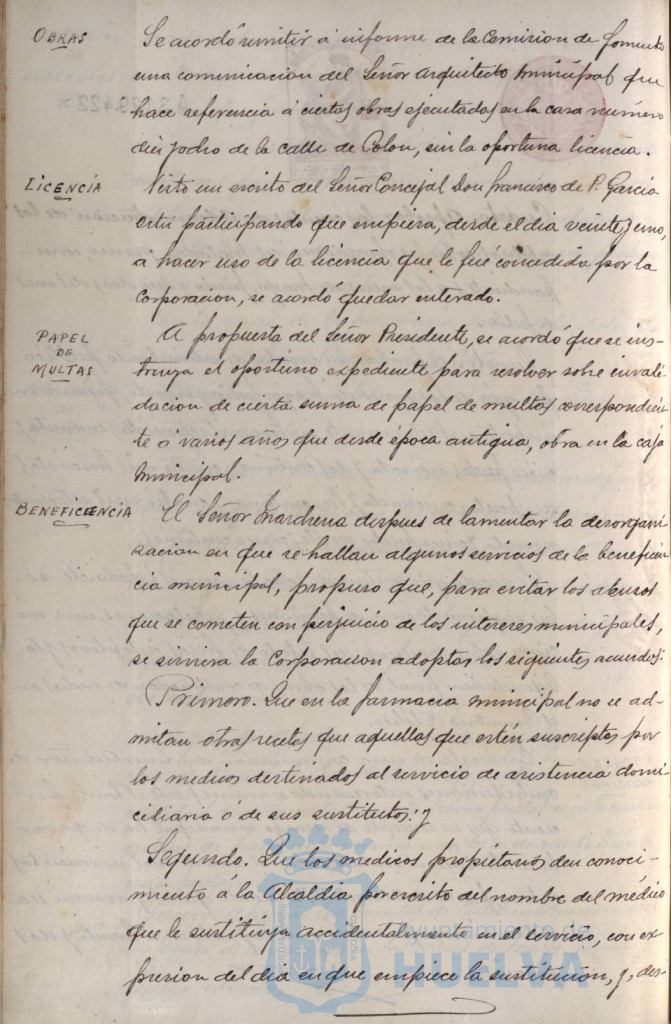 OBRAS
Se acordó remitir á informe de la Comision de fomento
una comunicacion del Señor Arquitecto municipal que
hace referencia á ciertas obras ejecutadas en la casa número
diez y ocho de la calle de Colon, sin la oportuna licencia.
LICENCIA
Visto un escrito del Señor Concejal Don Francisco de P. Garcia
Ortiz participando que empieza, desde el dia veinte y uno,
á hacer uso de la licencia que le fué concedida por la
Corporacion, se acordó quedar enterado.
PAPEL
DE
MULTAS
A propuesta del Señor Presidente, se acordó que se ins-
truya el oportuno expediente para resolver sobre invali-
dacion de cierta suma de papel de multas correspondien-
te á varios años que desde época antigua, obra en la caja
municipal.
BENEFICENCIA
El Señor Marchena despues de lamentar la desorgani-
zacion en que se hallan algunos servicios de la beneficen-
cia municipal, propuso que, para evitar los abusos
que se cometen con perjuicio de los intereses municipales,
se sirviera la Corporacion adoptar los siguientes acuerdos:
Primero. Que en la farmacia municipal no se ad-
mitan otras recetas que aquellas que estén suscriptas por
los medicos destinados al servicio de asistencia domi-
ciliaria ó de sus sustitutos: y
Segundo. Que los medicos propietarios den conoci-
miento á la Alcaldia por escrito del nombre del médico
que le sustituya accidentalmente en el servicio, con ex-
presion del dia en que empiece la sustitucion, y, des-
Ayuntamiento de
HUELVA